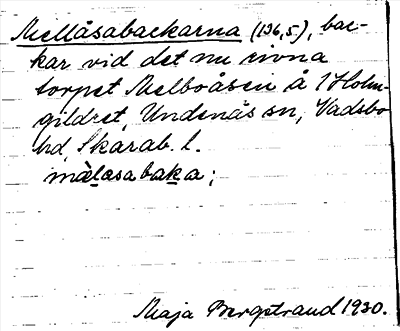 Mellåsabackarna (136,5), bac-
kar vid det nu rivna
torpet Melboåsen å 1 Holm-
gildret, Undenäs sn, Vadsbo
hd, Skarab. l.
mäl​asabaka;
Maja Bergstrand 1930.